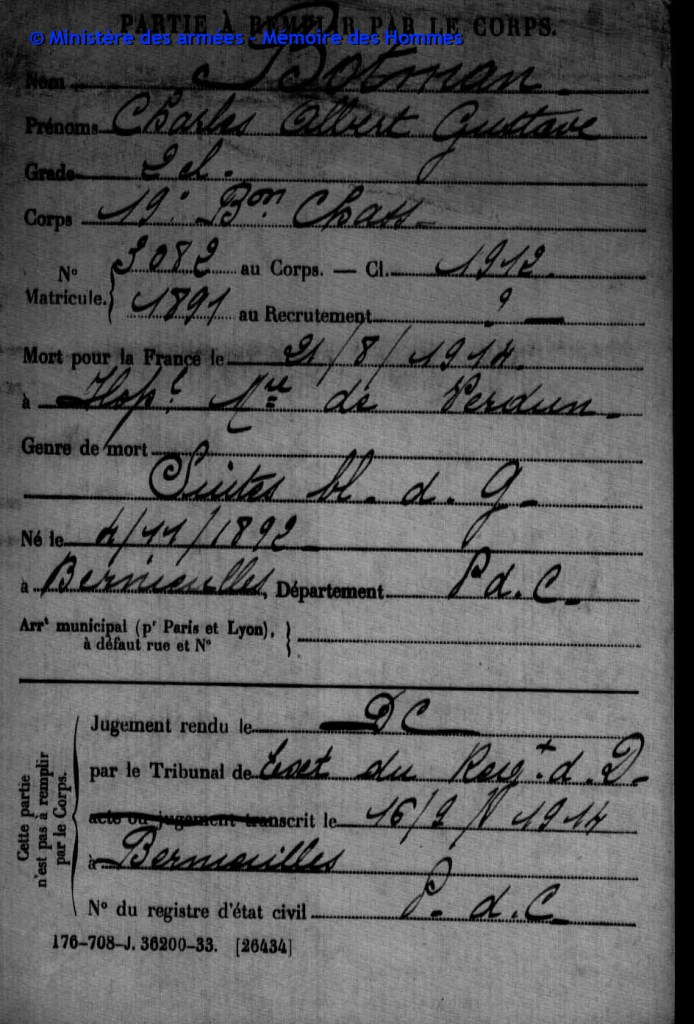 PARTIE À REMPLIR PAR LE CORPS.
© Ministère des armées - Mémoire des Hommes
Nom Botman
Prénoms Charles Albert Gustave
Grade 2 cl.
Corps 19e Bon Chass
No Matricule. 3082 au Corps. — Cl. 1912
1891 au Recrutement ? —
Mort pour la France le 21/8/1914
à Hopt Mre de Verdun
Genre de mort
Suites bl. d. G
Né le 4/11/1892
à Bernieulles, Département P d. C
Arrt municipal (pr Paris et Lyon), à défaut rue et No
Cette partie n'est pas à remplir par le Corps.
Jugement rendu le DC
par le Tribunal de Ext du Reg. d. D
acte ou jugement transcrit le 16/9/1914
à Bernieulles
No du registre d'état civil P. d. C
176-708-J. 36200-33. [26434]